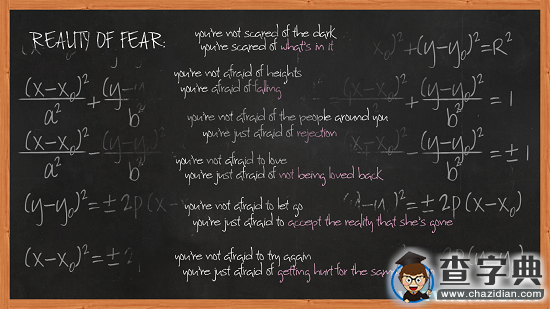 REALITY OF FEAR:
you're not scared of the dark
you're scared of what's in it
you're not afraid of heights
you're afraid of falling
you're not afraid of the people around you
you're just afraid of rejection
you're not afraid to love
you're just afraid of not being loved back
you're not afraid to let go
you're just afraid to accept the reality that she's gone
you're not afraid to try again
you're just afraid of getting hurt for the same
(x-x₀)²/a² + (y-
b²
(x-x₀)²/a² - (y-y₀)²/b²
(y-y₀)² = ± 2p(x-
(x-x₀)² = ± 2
x₀)² + (y-y₀)² = R²
+ (y-y₀)²/b² = 1
(y-y₀)²/b² = ± 1
)² = ± 2p(x-x₀)
查字典
www.chazidian.com